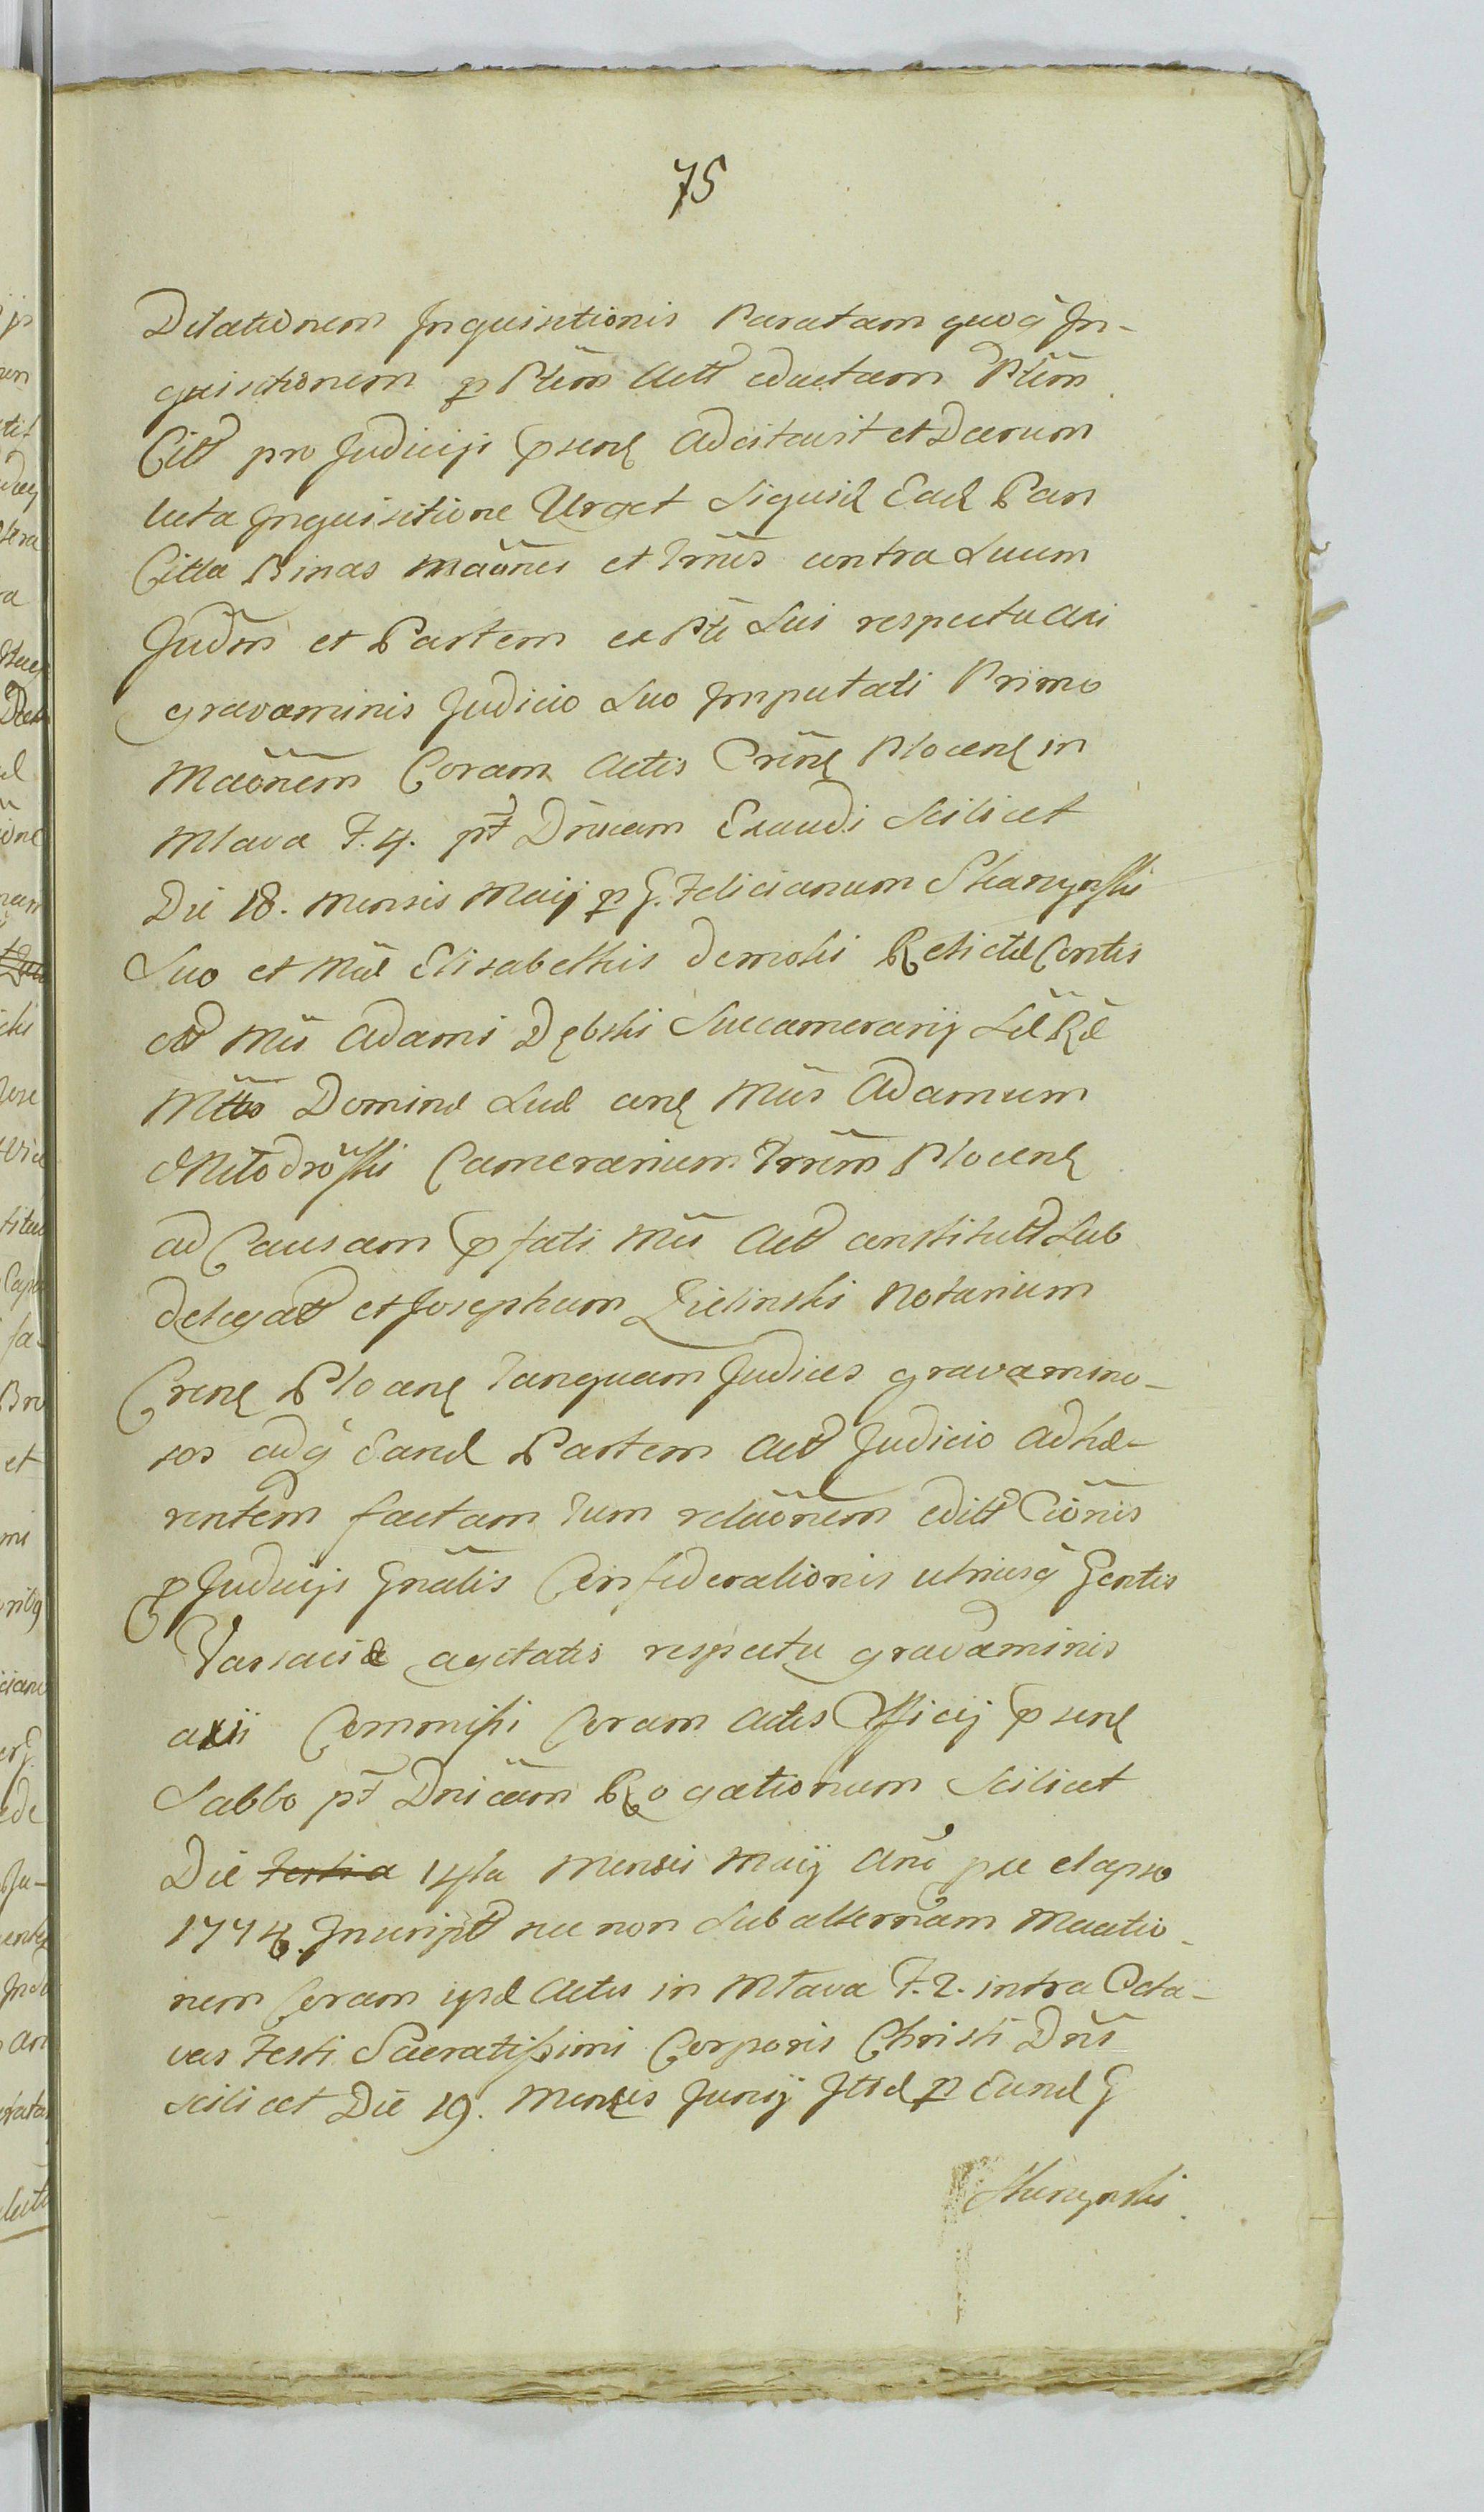 75
Dilationem Inquisitionis Paratam quoq In-
quisitionem p Ptem Actt eductam Ptem
Citt pro Judicijs psenq Adcitavit et Decrum
luta Inquisitione Urget Siquid Ead Pars
Citta Binas Mãones et Trñis contra Suum
Judm et Partem ex Pte Sui respectu axi
gravaminis Judicio Suo Imputati Primo
Mãonem Coram Actis Crenq Plocenq in
Mlava F. 4. pt Dnicam Exaudi Scilicet
Die 18. Mensis Maij p G. Felicianum Skarzynski
Suo et Mãe Elisabethis Demski Relictæ Contis
olt Mci Adami Dębski Succamerarij Sæ Ræ
Mttis Dominæ Suæ cenq Mcus Adamum
Młodrowski Camerarium Trrum Plocenq
ad Causam pfati Mci Actt constitutt Sub
delegatt et Josephum Zielinski Notarium
Crenq Plocenq Tanquam Judices gravamino-
sos adq Eand Partem Actt Judicio Adhæ-
rentem factam Tum relãonem editt Cionis
p Judicijs Gnalis Confederationis utriusq Gentis
Varsaviæ agitatis respectu gravaminis
axii Commissi Coram Actis Officij psenq
Sabbo pt Dnicam Rogationum Scilicet
Die Tertia 14ta Mensis Maij Ano præ elapso
1774. Inscript nec non Subalternam Mãatio-
nem Coram ipsd Actis in Mlava F. 2. intra Octa-
vas Festi Sacratissimi Corporis Christi Dni
scilicet Die 19. Mensis Junij Itid p Eund G
Skarzynski.